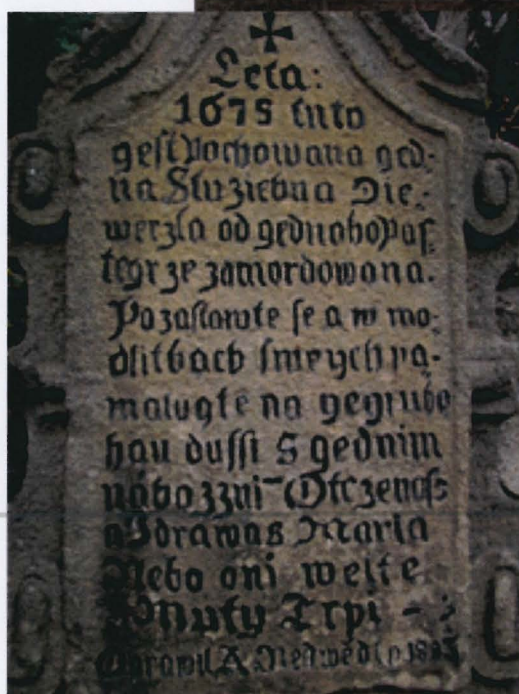 Leta:
1675 tuto
gest Pochowana ged-
na Sluziebna Die-
weczla od gednoho Pas-
teyrze zamordowana.
Pozastawte se a w mo-
dlitbach smeych pa-
matugte na gegi ubo
hau dussi S gednim
nábozzni Otczenass
a Zdrawas Maria
Nebo oni welte
Muky Trpi -
Oprawil A. Nedwěd